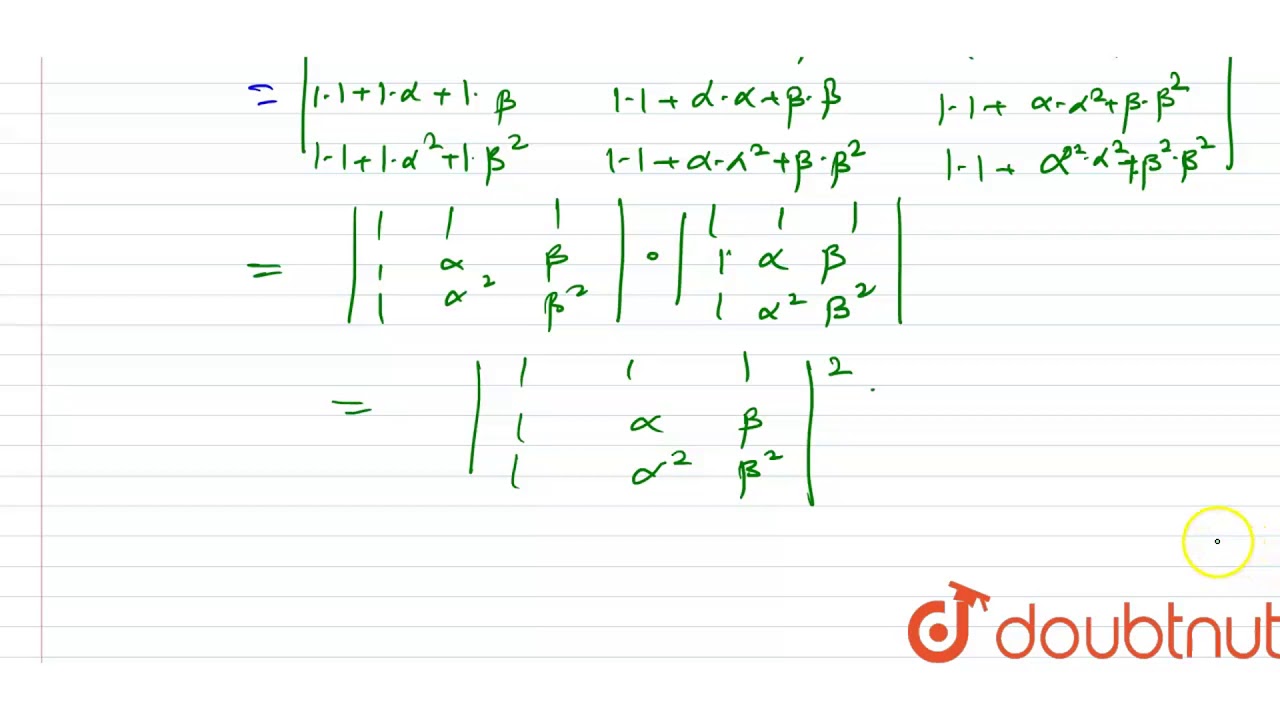 = | 1·1+1·α+1·β 1·1+α·α+β·β 1·1+α·α²+β·β² |
| 1·1+1·α²+1·β² 1·1+α·α²+β·β² 1·1+α²·α²+β²·β² |
| 1 1 1 | | 1 1 1 |
= | 1 α β | · | 1 α β |
| 1 α² β² | | 1 α² β² |
| 1 1 1 |²
= | 1 α β |
| 1 α² β² |
doubtnut